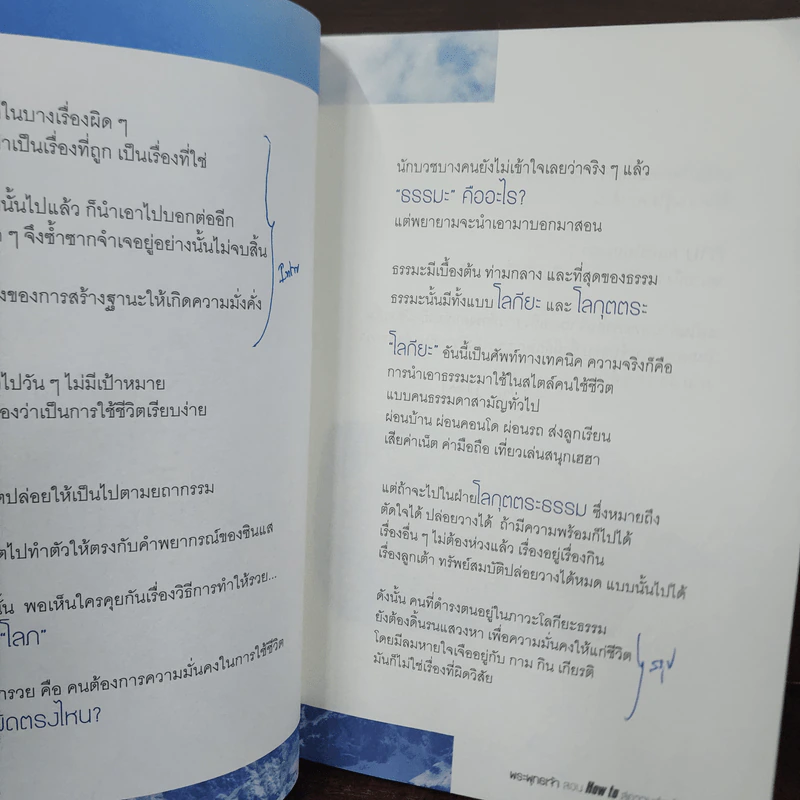 ในบางเรื่องผิด ๆ
เป็นเรื่องที่ถูก เป็นเรื่องที่ใช่
นั้นไปแล้ว ก็นำเอาไปบอกต่ออีก
ๆ จึงซ้ำซากจำเจอยู่อย่างนั้นไม่จบสิ้น
ของการสร้างฐานะให้เกิดความมั่งคั่ง
ไปวัน ๆ ไม่มีเป้าหมาย
ว่าเป็นการใช้ชีวิตเรียบง่าย
ปล่อยให้เป็นไปตามยถากรรม
ไปทำตัวให้ตรงกับคำพยากรณ์ของซินแส
พอเห็นใครคุยกันเรื่องวิธีการทำให้รวย...
"โลก"
รวย คือ คนต้องการความมั่นคงในการใช้ชีวิต
ผิดตรงไหน?
นักบวชบางคนยังไม่เข้าใจเลยว่าจริง ๆ แล้ว
"ธรรมะ" คืออะไร?
แต่พยายามจะนำเอามาบอกมาสอน
ธรรมะมีเบื้องต้น ท่ามกลาง และที่สุดของธรรม
ธรรมะนั้นมีทั้งแบบ โลกียะ และ โลกุตตระ
"โลกียะ" อันนี้เป็นศัพท์ทางเทคนิค ความจริงก็คือ
การนำเอาธรรมะมาใช้ในสไตล์คนใช้ชีวิต
แบบคนธรรมดาสามัญทั่วไป
ผ่อนบ้าน ผ่อนคอนโด ผ่อนรถ ส่งลูกเรียน
เสียค่าเน็ต ค่ามือถือ เที่ยวเล่นสนุกเฮฮา
แต่ถ้าจะไปในฝ่ายโลกุตตระธรรม ซึ่งหมายถึง
ตัดใจได้ ปล่อยวางได้ ถ้ามีความพร้อมก็ไปได้
เรื่องอื่น ๆ ไม่ต้องห่วงแล้ว เรื่องอยู่เรื่องกิน
เรื่องลูกเต้า ทรัพย์สมบัติปล่อยวางได้หมด แบบนั้นไปได้
ดังนั้น คนที่ดำรงตนอยู่ในภาวะโลกียะธรรม
ยังต้องดิ้นรนแสวงหา เพื่อความมั่นคงให้แก่ชีวิต
โดยมีลมหายใจเจืออยู่กับ กาม กิน เกียรติ
มันก็ไม่ใช่เรื่องที่ผิดวิสัย
สรุป
พระพุทธเจ้า สอน How to